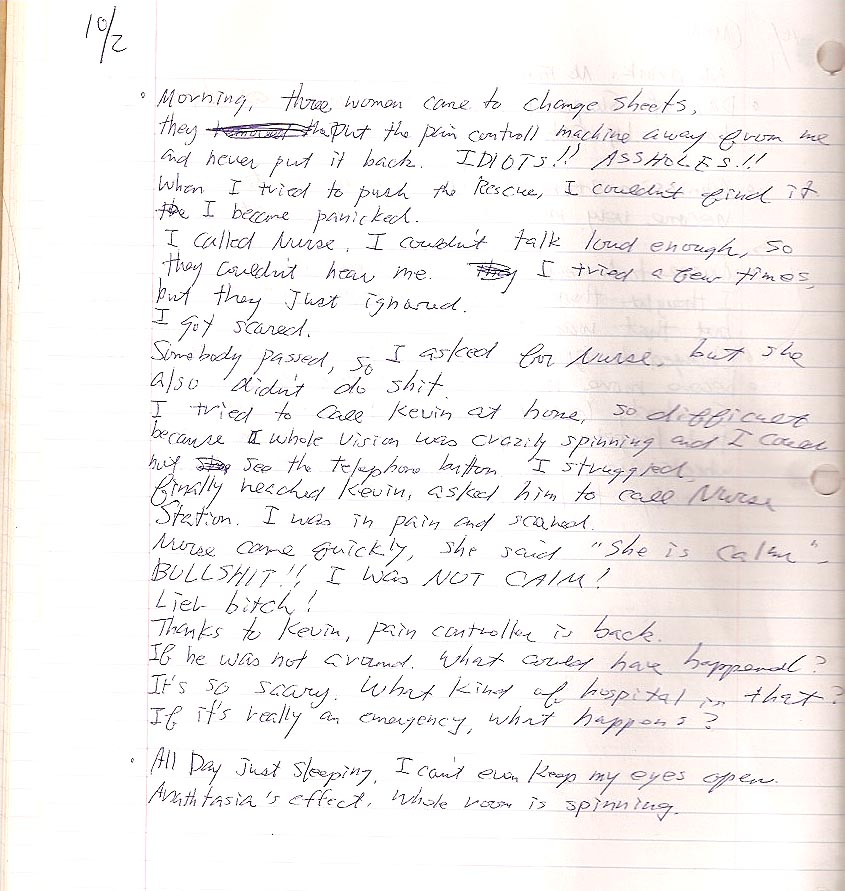 10/2
• Morning, three women came to change sheets,
they removed the put the pain controll machine away from me
and never put it back. IDIOTS!! ASSHOLES!!
When I tried to push the Rescue, I couldn't find it
the I became panicked.
I called Nurse. I couldn't talk loud enough, so
they couldn't hear me. they I tried a few times,
but they just ignored.
I got scared.
Somebody passed, so I asked for Nurse, but she
also didn't do shit.
I tried to call Kevin at home, so difficult
because I whole vision was crazily spinning and I could
not see the telephone button. I struggled,
finally reached Kevin, asked him to call Nurse
Station. I was in pain and scared.
Nurse came quickly, she said "She is calm".
BULLSHIT!! I was NOT CALM!
Lier bitch!
Thanks to Kevin, pain controller is back.
If he was not around. What could have happened?
It's so scary. What kind of hospital is that?
If it's really an emergency, what happens?
• All Day just sleeping, I can't even keep my eyes open.
Anathtasia's effect. Whole room is spinning.